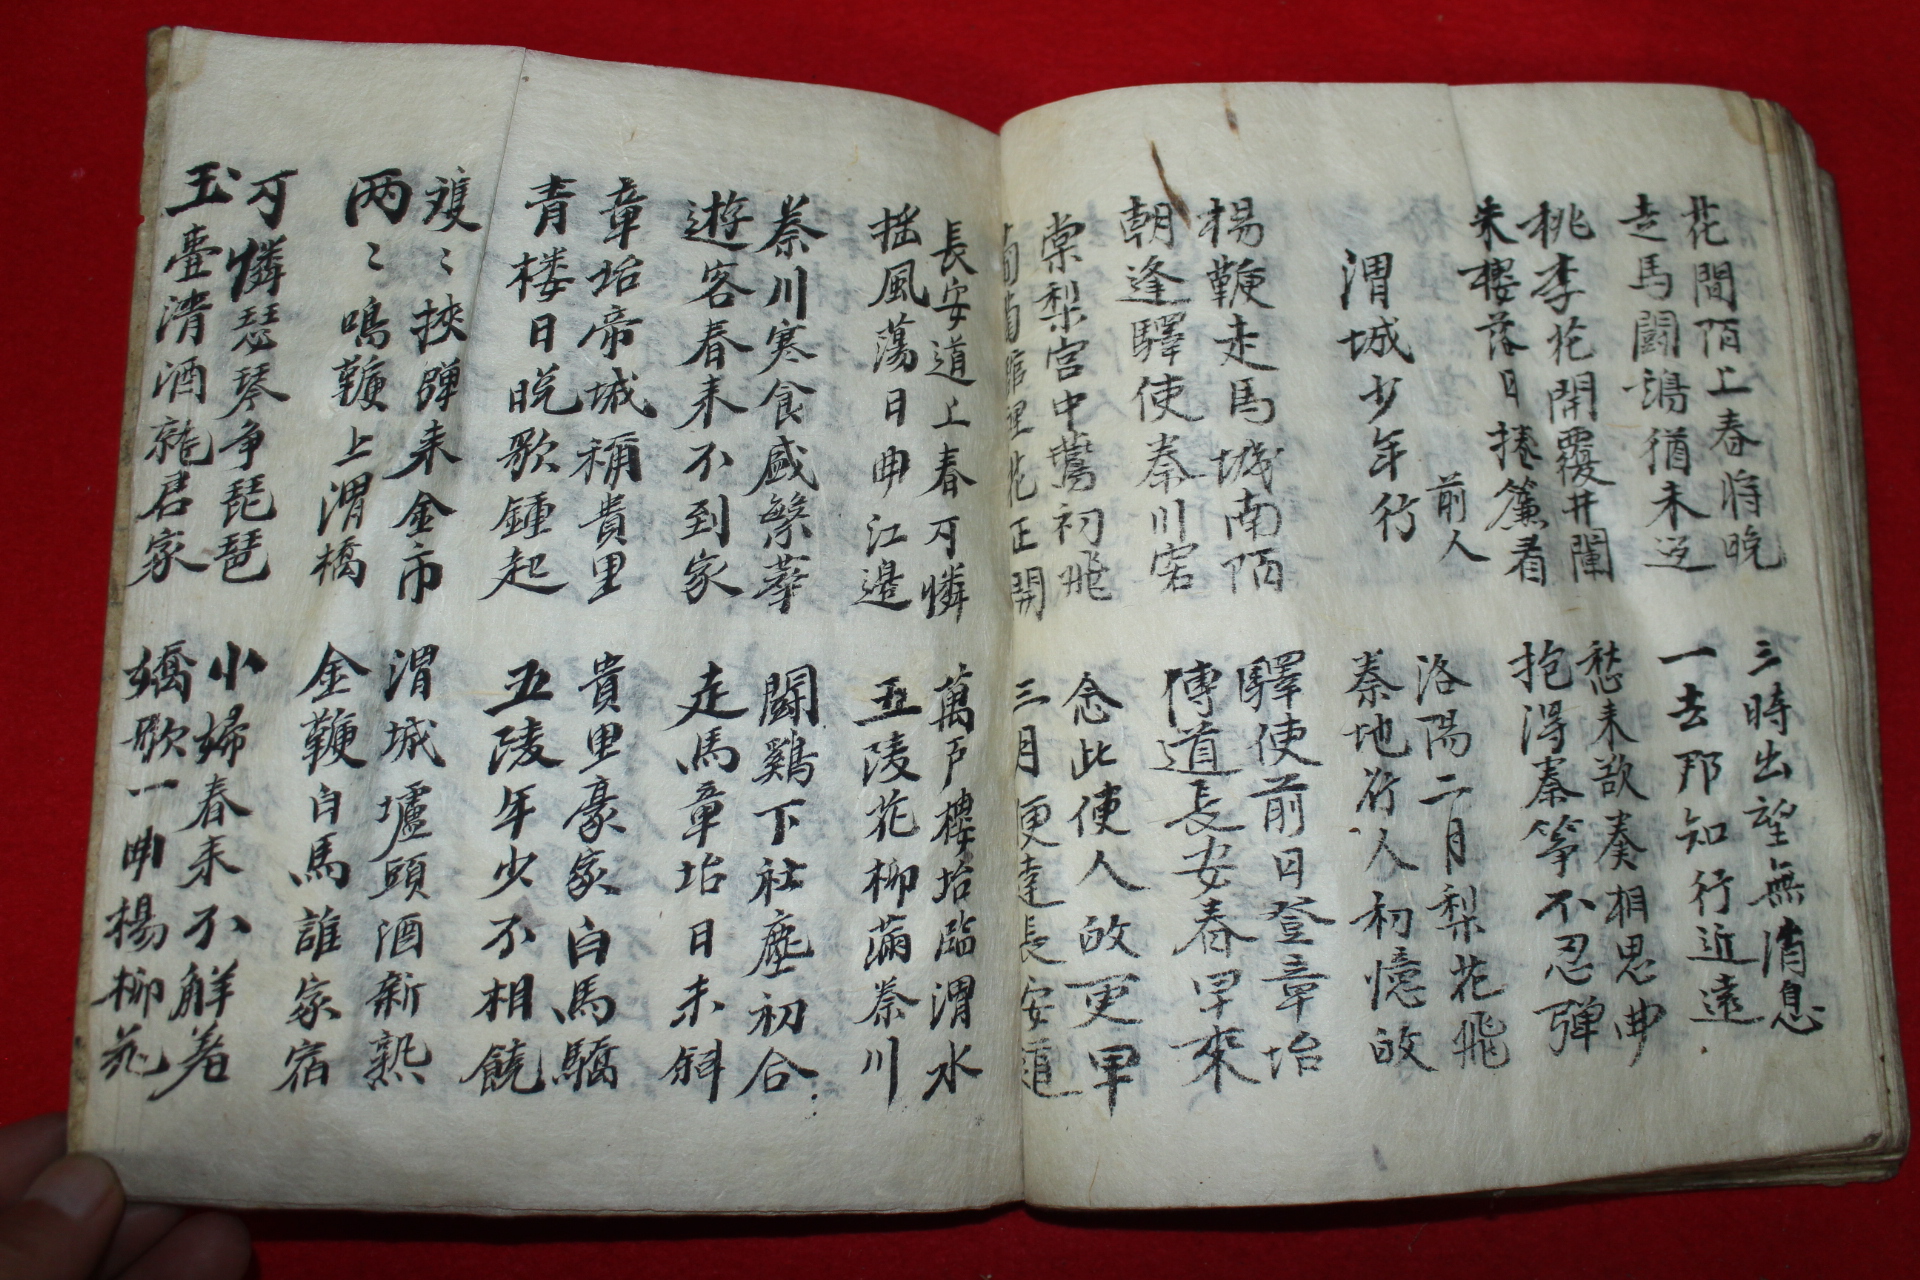 花間陌上春将晚
走馬闘鷄猶未返
三時出望無消息
一去那知行近遠
桃李花開覆井闌
朱樓落日捲簾看
愁来欲奏相思曲
抱得秦箏不忍彈
渭城少年行
前人
洛陽二月梨花飛
秦地行人初憶故
楊鞭走馬城南陌
朝逢驛使秦川客
驛使前日登章坮
傳道長安春早來
棠梨宮中鶯初飛
葡萄館裡花正開
念此使人故更早
三月便達長安道
長安道上春可憐
搖風蕩日曲江邊
萬戶樓坮臨渭水
五陵花柳滿秦川
秦川寒食盛繁華
遊客春来不到家
闘鷄下社塵初合
走馬章坮日未斜
章坮帝城稱貴里
青楼日晩歌鍾起
貴里豪家白馬驕
五陵年少不相饒
雙〻挾彈来金市
两〻鳴鞭上渭橋
渭城壚頭酒新熟
金鞭白馬誰家宿
可憐瑟琴爭琵琶
玉臺清酒就君家
小婦春来不解着
嬌歌一曲楊柳花